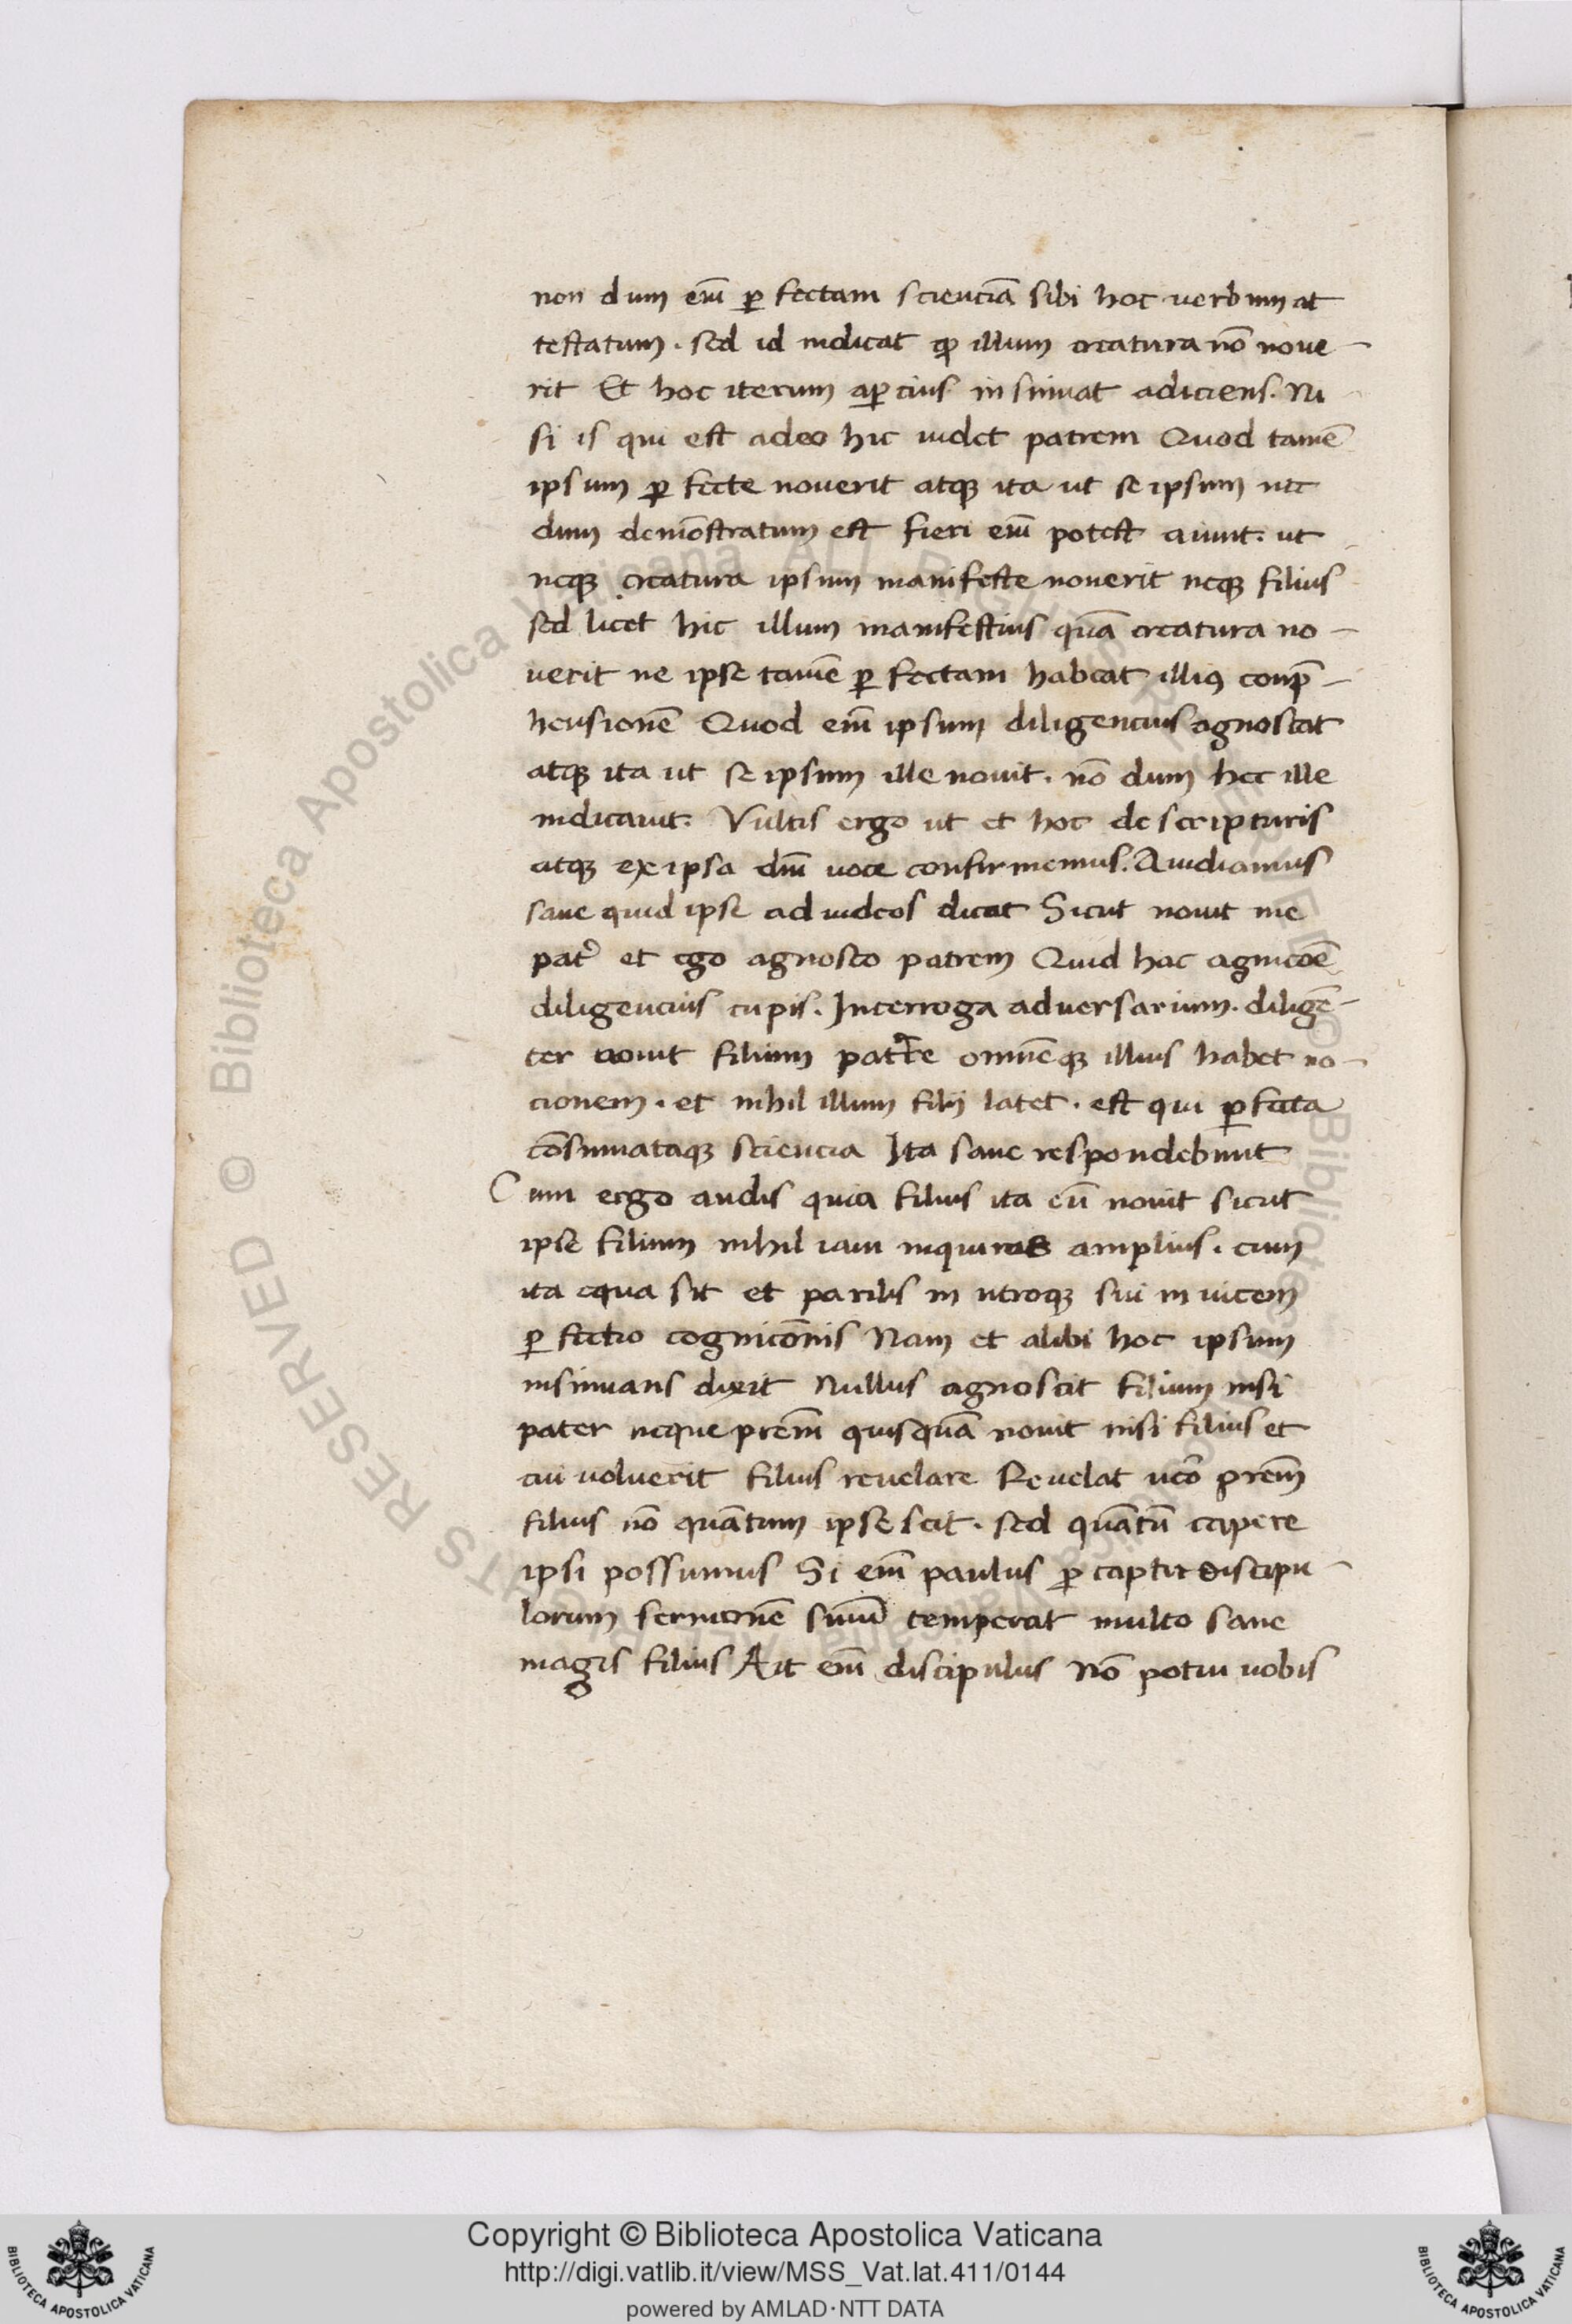 non dum em̄ ꝑ fectam scienciā sibi hoc verbum at
testatum . sed id indicat ꝙ illum creatura nō noue -
rit Et hoc iterum aꝑcius insinuat adiciens . Ni
si is qui est adeo hic uidet patrem Quod tamē
ipsum ꝑ fecte nouerit atqꝫ ita ut se ipsum nec
dum demōstratum est fieri em̄ potest aiunt . ut
neqꝫ creatura ipsum manifeste nouerit neqꝫ filius
sed licet hic illum manifestius quā creatura no -
uerit ne ipse tamē ꝑ fectam habeat illiꝰ conp̄ -
hensionē Quod em̄ ipsum diligencius agnoscat
atqꝫ ita ut se ipsum ille nouit . nō dum hec ille
indicauit . Vultis ergo ut et hoc de scripturis
atqꝫ ex ipsa dn̄i uoce confirmemus . Audiamus
sane quid ipse ad iudeos dicat Sicut nouit me
pat᷑ et ego agnosco patrem Quid hac agnicōe
diligencius cupis . Interroga aduersarium . diligē -
ter nouit filium omnēqꝫ illius habet no -
cionem . et nihil illum filij latet . est qui ꝑfecta
cōsummataqꝫ sciencia Ita sane respondebunt
Cum ergo audis quia filius ita eū nouit sicut
ipse filium nihil iam inquiras amplius . cum
ita equa sit et parilis in utroqꝫ sui inuicem
ꝑ fectio cognicōnis Nam et alibi hoc ipsum
insinuans dixit Nullus agnoscit filium nisi
pater neque prēm quisquā nouit nisi filius et
cui voluerit filius reuelare Reuelat ucro᷑ prēm
filius nō quātum ipse scit . sed quātū capere
ipsi possumus Si em̄ paulus ꝑ captu discipu -
lorum sermonē suū temperat multo sane
magis filius Ait em̄ discipulus Nō potui uobis
Copyright © Biblioteca Apostolica Vaticana
http://digi.vatlib.it/view/MSS_Vat.lat.411/0144
powered by AMLAD·NTT DATA